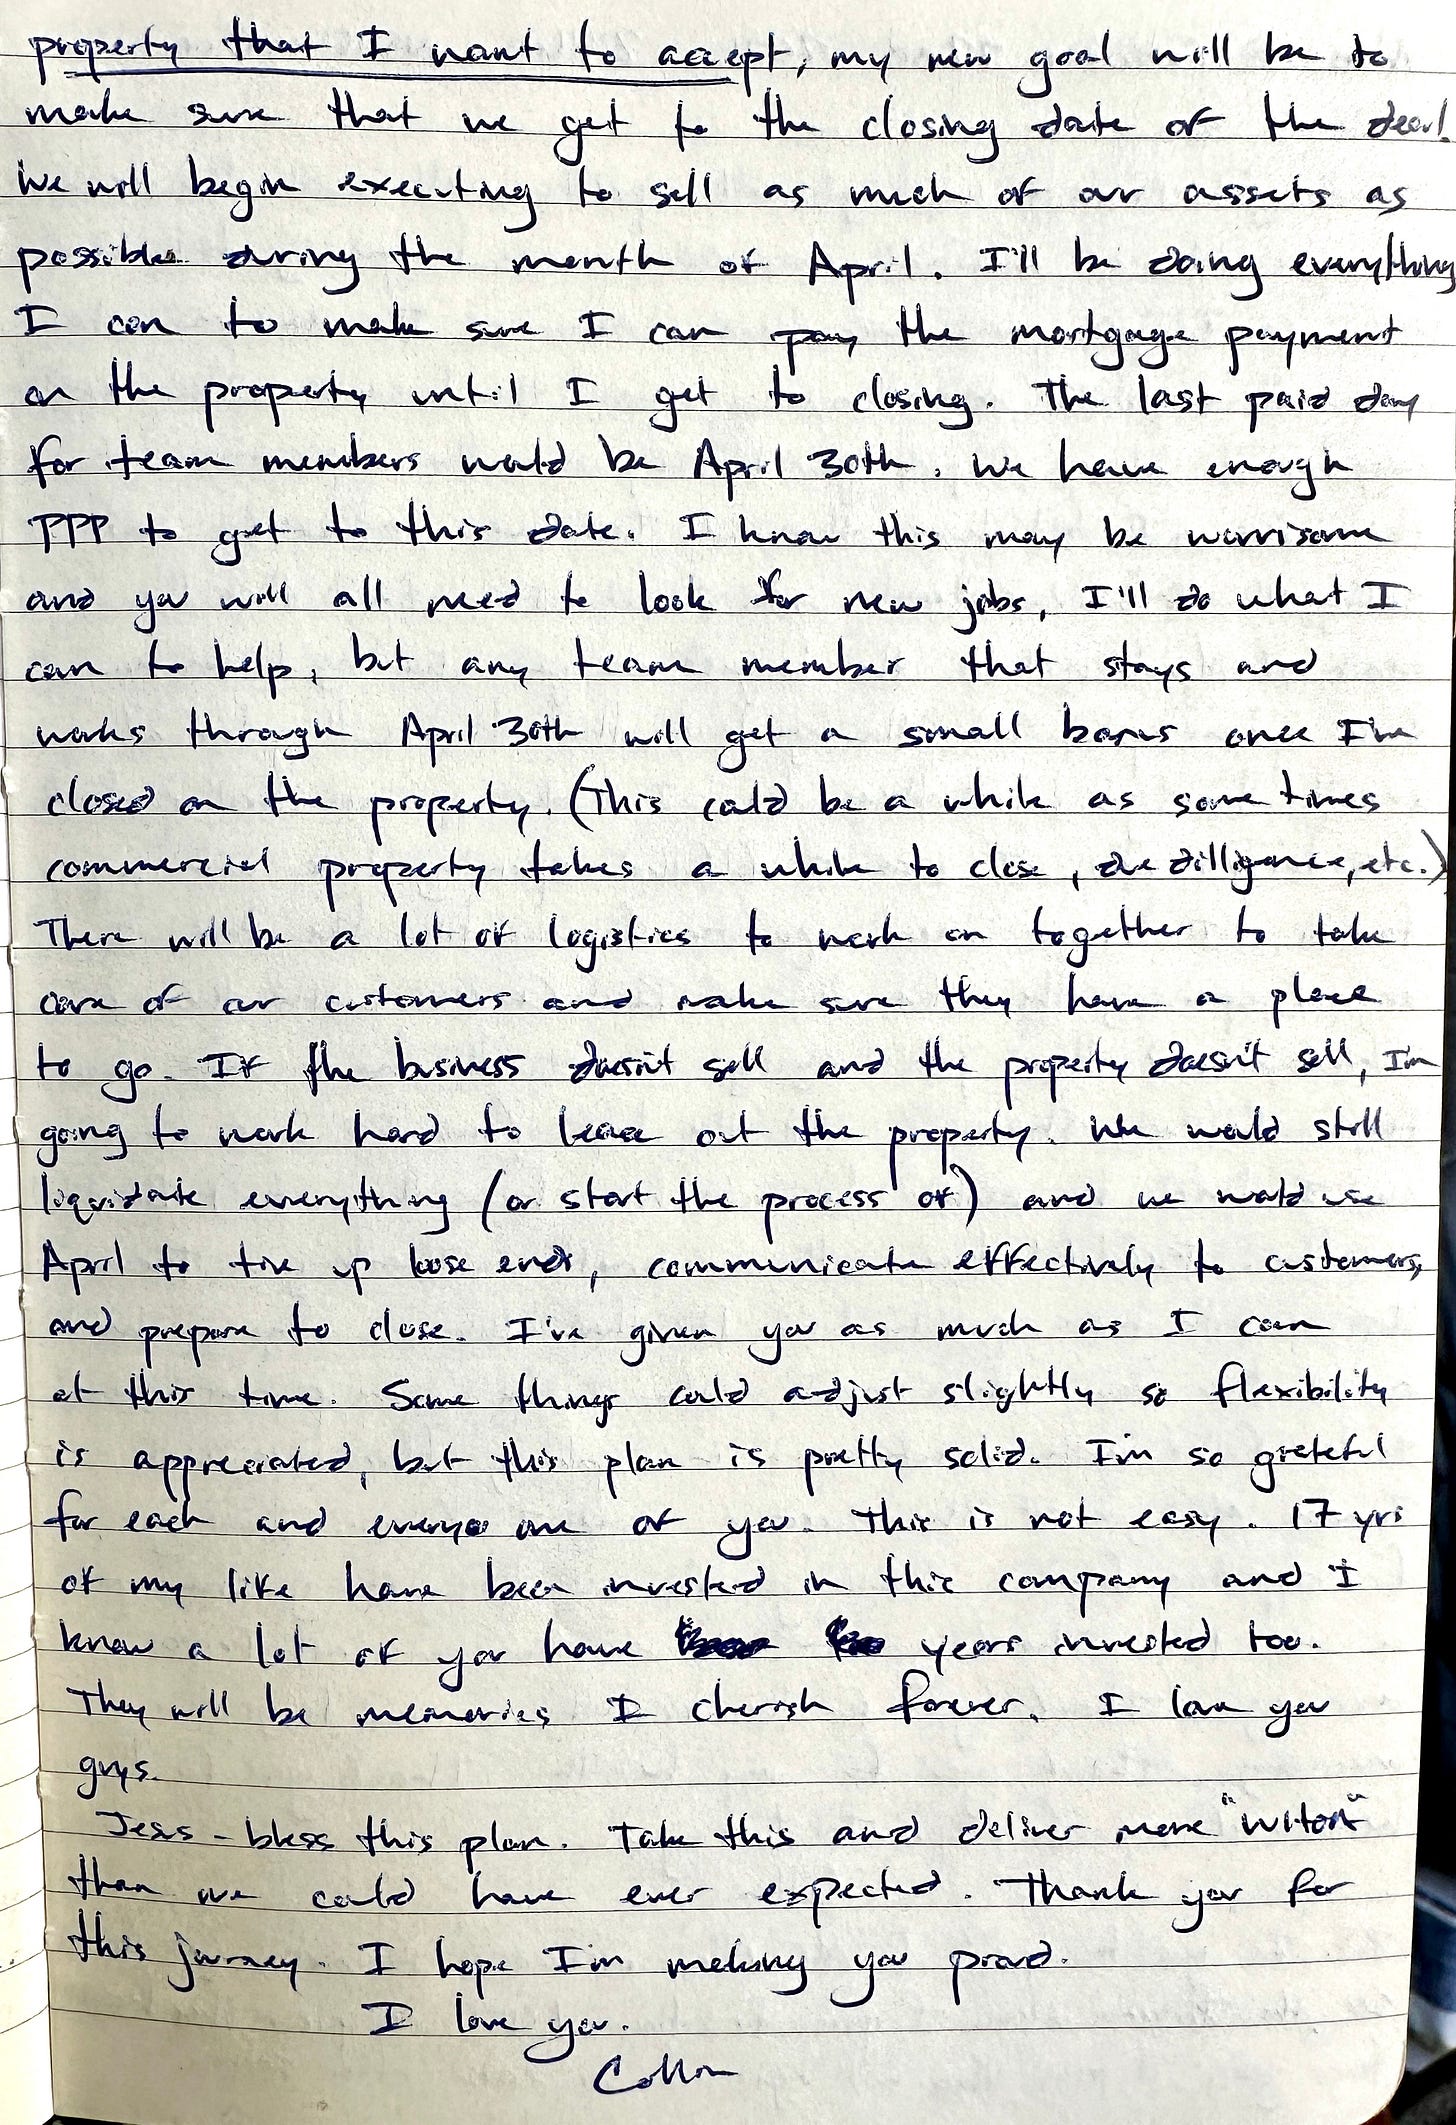 property that I want to accept, my new goal will be to
make sure that we get to the closing date of the deal.
We will begin executing to sell as much of our assets as
possible during the month of April. I'll be doing everything
I can to make sure I can pay the mortgage payment
on the property until I get to closing. The last paid day
for team members would be April 30th. We have enough
PPP to get to this date. I know this may be worrisome
and you will all need to look for new jobs, I'll do what I
can to help, but any team member that stays and
works through April 30th will get a small bonus once I'm
closed on the property. (This could be a while as sometimes
commercial property takes a while to close, due dilligence, etc.)
There will be a lot of logistics to work on together to take
care of our customers and make sure they have a place
to go. If the business doesn't sell and the property doesn't sell, I'm
going to work hard to lease out the property. We would still
liquidate everything (or start the process of) and we would use
April to tie up loose ends, communicate effectively to customers,
and prepare to close. I've given you as much as I can
at this time. Some things could adjust slightly so flexibility
is appreciated, but this plan is pretty solid. I'm so grateful
for each and every one of you. This is not easy. 17 yrs
of my life have been invested in this company and I
know a lot of you have years invested too.
They will be memories I cherish forever. I love you
guys.
Jesus - bless this plan. Take this and deliver more
than we could have ever expected. Thank you for
this journey. I hope I'm making you proud.
I love you.
Collin